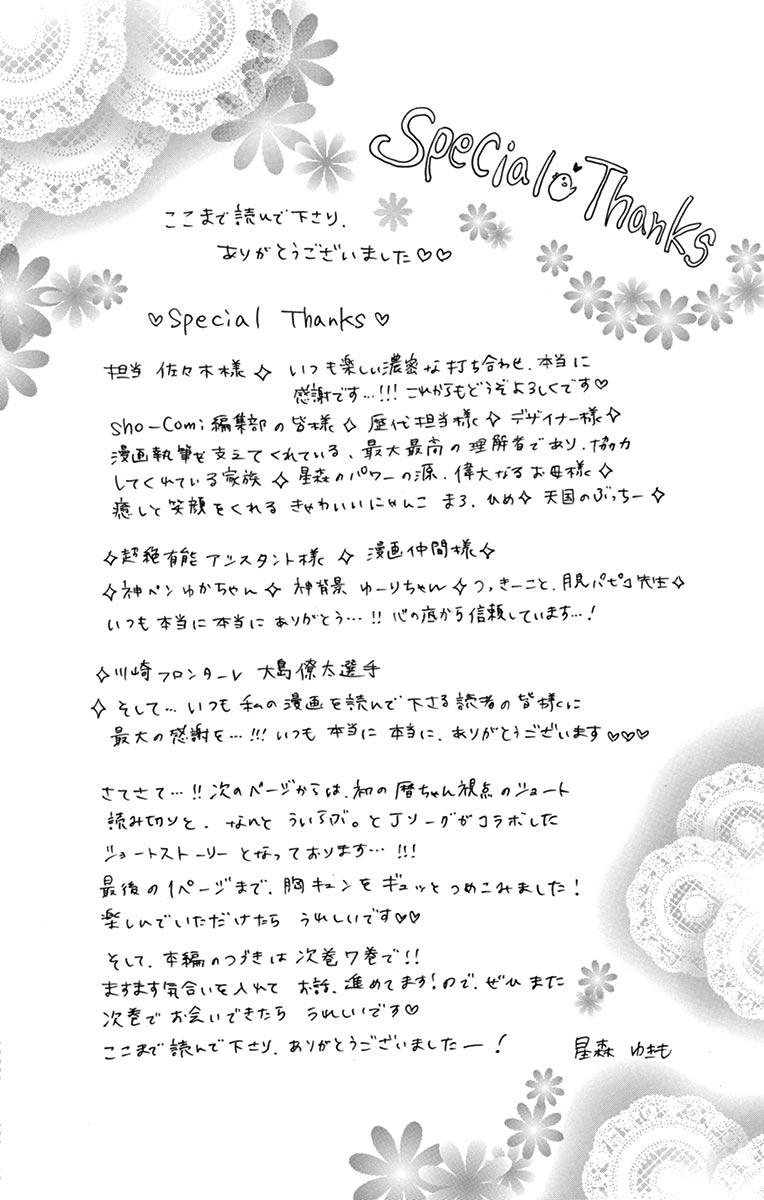 Special Thanks
ここまで読んで下さり、
ありがとうございました♡♡
♡Special Thanks♡
担当 佐々木様✧ いつも楽しい濃密な打ち合わせ、本当に
感謝です…!!! これからもどうぞよろしくです♡
Sho-Comi編集部の皆様✧ 歴代担当様✧ デザイナー様✧
漫画執筆を支えてくれている、最大最高の理解者であり、協力
してくれている家族 ✧星森のパワーの源、偉大なるお母様✧
癒しと笑顔をくれる きゃわいいにゃんこ まろ、ひめ✧ 天国のぶっちー✧
✧超絶有能アシスタント様 ✧ 漫画仲間様✧
✧神ペンゆかちゃん✧ 神背景 ゆーりちゃん ✧つっきーこと、月見パピコ先生✧
いつも本当に本当に ありがとう…!! 心の底から信頼しています…!
✧川崎フロンターレ 大島僚太選手
✧ そして… いつも 私の漫画を読んで下さる読者の皆様に
最大の感謝を…!!! いつも 本当に 本当に、ありがとうございます♡♡♡
さてさて…!! 次のページからは、初の暦ちゃん視点のショート
読み切りと、なんと ういらぶ。とJリーグがコラボした
ショートストーリーとなっております…!!!
最後の1ページまで、胸キュンをギュッとつめこみました!
楽しんでいただけたら うれしいです♡♡
そして、本編のつづきは次巻7巻で!!
ますます気合いを入れて お話、進めてます!ので、ぜひ また
次巻で お会いできたら うれしいです♡
ここまで読んで下さり、ありがとうございましたー!
星森 ゆきも